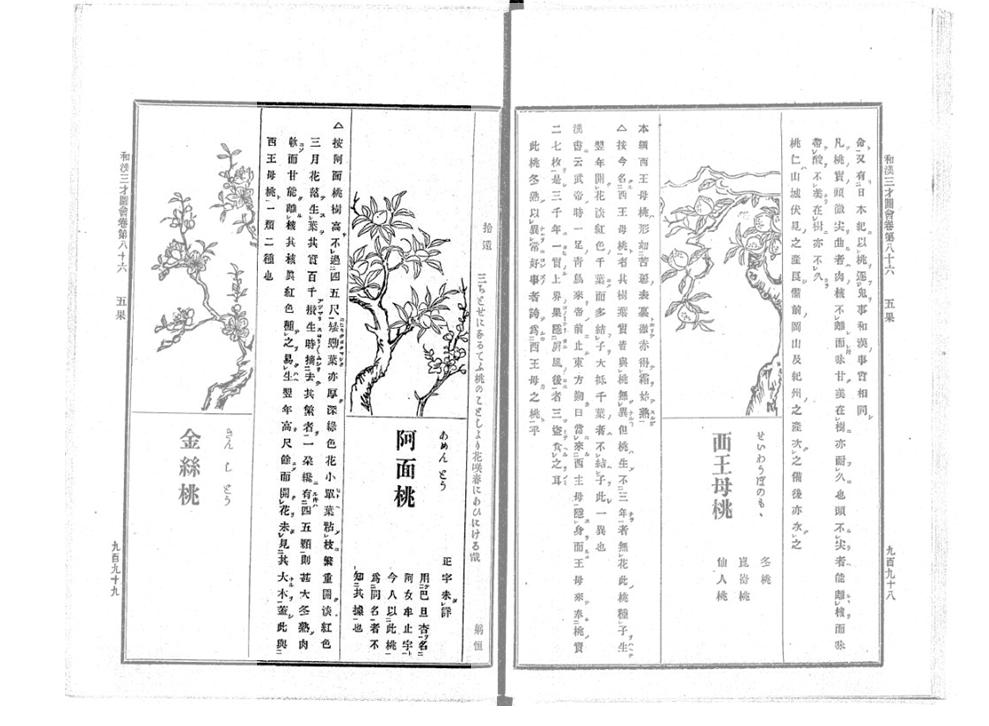 和漢三才圖會卷第八十六　五果
九百九十八
命又有日本紀以桃逐鬼事和漢事實相同
凡桃實頭微尖曲者肉核不離而味甘美在樹亦耐久也頭不尖者能離核而味
帶酸不美在樹亦不久
桃仁山城伏見之產良備前岡山及紀州之產次之備後亦次之
せいわうぼのもゝ
西王母桃
冬桃
崑崙桃
仙人桃
本綱西王母桃形如苦蔞表裏徹赤得霜始熟
△按今名西王母桃者其樹葉實皆與桃無異但桃生不三年者無花此桃種子生
翌年開花淡紅色千葉而多結子大抵千葉者不結子此一異也
漢書云武帝時一足青鳥來帝前止東方朔曰當來西王母隱身而王母來奉桃實
二七枚是三千年一實上界果隱屏風後者三盜食之耳
此桃冬熟以異常好事者誇爲西王母之桃乎
拾遺　三ちとせになるてふ桃のことしより花咲春にあひにける哉　躬恒
あめんとう
阿面桃
正字未詳
用巴旦杏名
阿女牟止字
今人以此桃
爲同名者不
知其據也
△按阿面桃樹高不過四五尺葉亦厚深綠色花小單葉粘枝繁重開淡紅色
三月花落生葉其實百千攢生時摘去其繁者一朶纔有四五顆則甚大冬熟肉
軟而甘能離核其核眞紅色種之易生翌年高尺餘而開花未見其大木蓋此與
西王母桃一類二種也
きんしとう
金絲桃
和漢三才圖會卷第八十六　五果
九百九十九